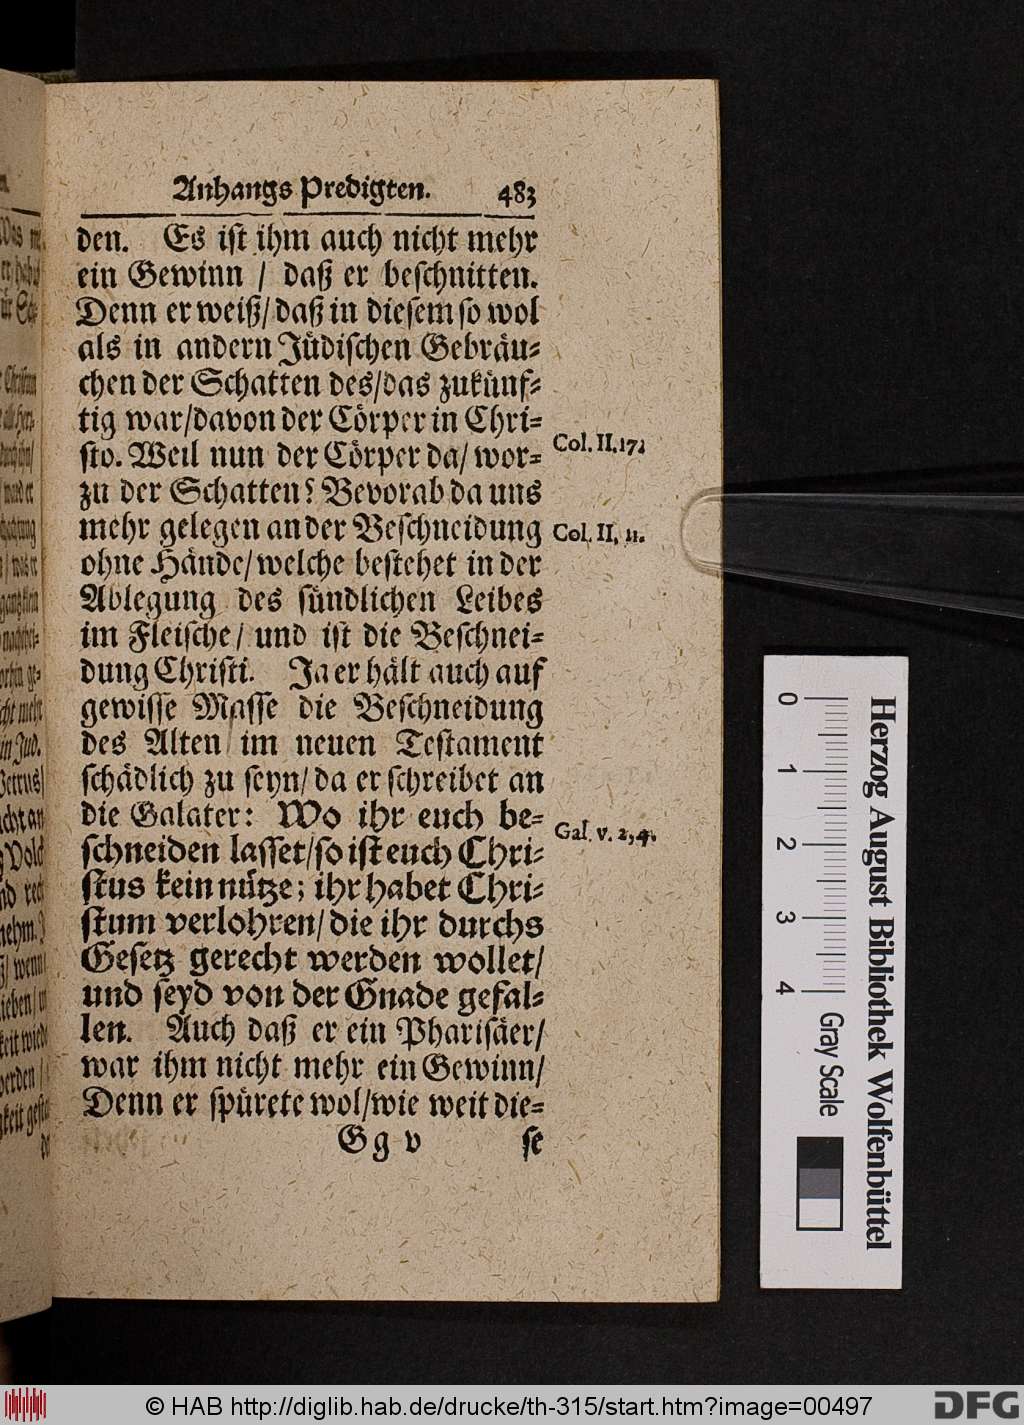 Anhangs Predigten. 483
den. Es ist ihm auch nicht mehr
ein Gewinn / daß er beschnitten.
Denn er weiß/ daß in diesem so wol
als in andern Jüdischen Gebräu-
chen der Schatten des/das zukünf-
tig war/davon der Cörper in Chri-
sto. Weil nun der Cörper da/ wor-
Col. II.17.
zu der Schatten? Bevorab da uns
mehr gelegen an der Beschneidung
Col. II, 11.
ohne Hände/ welche bestehet in der
Ablegung des sündlichen Leibes
im Fleische/ und ist die Beschnei-
dung Christi. Ja er hält auch auf
gewisse Masse die Beschneidung
des Alten im neuen Testament
schädlich zu seyn/ da er schreibet an
die Galater: Wo ihr euch be-
Gal. v. 2,4.
schneiden lasset/so ist euch Chri-
stus kein nütze; ihr habet Chri-
stum verlohren/die ihr durchs
Gesetz gerecht werden wollet/
und seyd von der Gnade gefal-
len. Auch daß er ein Pharisäer/
war ihm nicht mehr ein Gewinn/
Denn er spürete wol/wie weit die-
Gg v se
0 1 2 3 4 Gray Scale
Herzog August Bibliothek Wolfenbüttel
© HAB http://diglib.hab.de/drucke/th-315/start.htm?image=00497
DFG